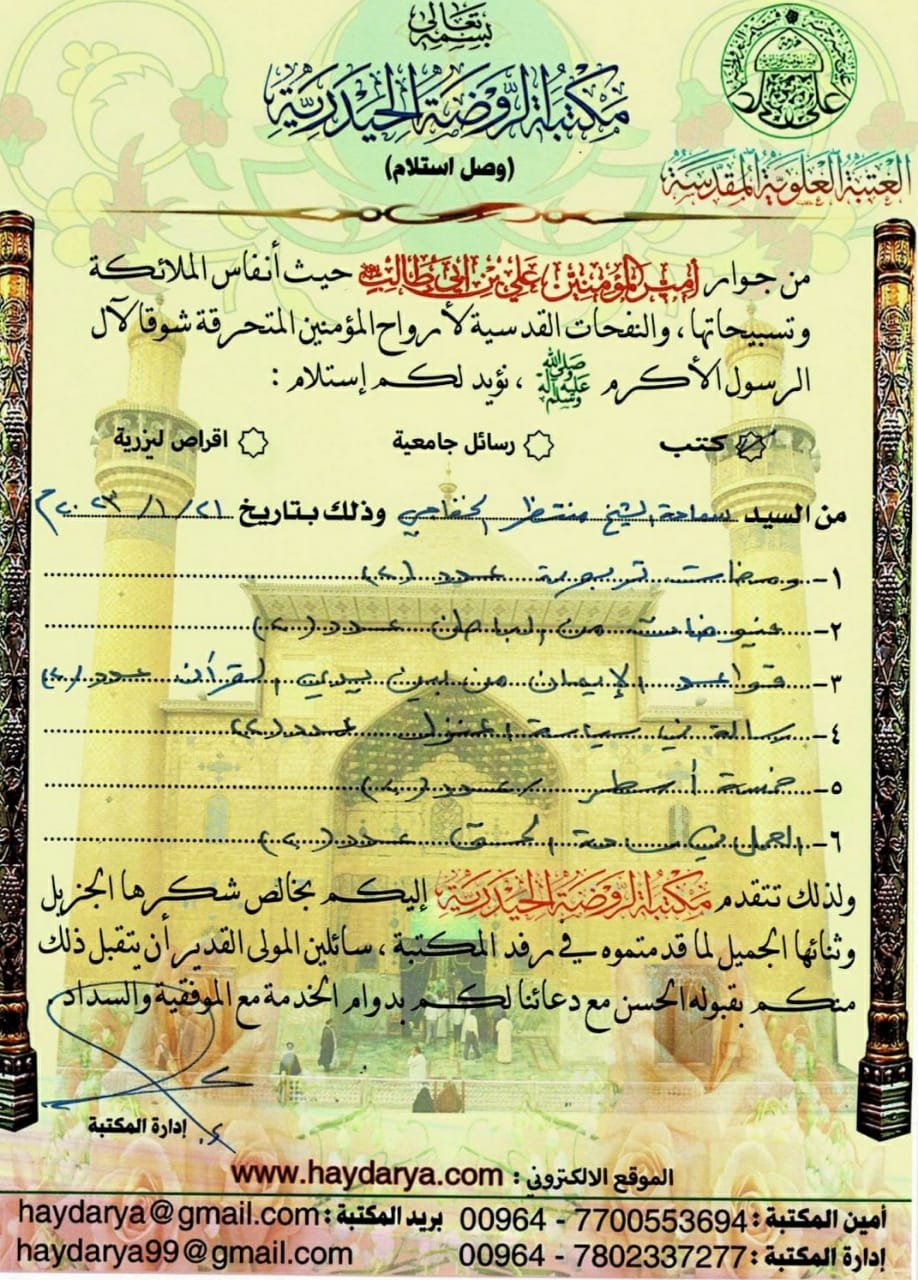 بسمه تعالى
مكتبة الروضة الحيدرية
(وصل استلام)
العتبة العلوية المقدسة
من جوار أمير المؤمنين علي بن أبي طالب حيث أنفاس الملائكة
وتسبيحاتها، والنفحات القدسية لأرواح المؤمنين المتحرقة شوقا لآل
الرسول الأكرم صلى الله عليه وآله وسلم، نؤيد لكم إستلام:
كتب رسائل جامعية اقراص ليزرية
من السيد سماحة الشيخ منتظر الخفاجي وذلك بتاريخ ٢١/١/٢٠٢٣م
١- ومضات عدد (٢)
٢- فيوضات من الباطن عدد (٢)
٣- قواعد الإيمان من بين يدي القرآن عدد (٢)
٤- رسالة في سياسة عدد (٢)
٥- خمسة أسطر عدد (٢)
٦- العمل الحق عدد (٢)
ولذلك تتقدم مكتبة الروضة الحيدرية إليكم بخالص شكرها الجزيل
وثنائها الجميل لما قدمتموه في رفد المكتبة، سائلين المولى القدير أن يتقبل ذلك
منكم بقبوله الحسن مع دعائنا لكم بدوام الخدمة مع الموفقية والسداد
إدارة المكتبة
الموقع الالكتروني: www.haydarya.com
أمين المكتبة: 00964 - 7700553694 بريد المكتبة: haydarya@gmail.com
إدارة المكتبة: 00964 - 7802337277 haydarya99@gmail.com